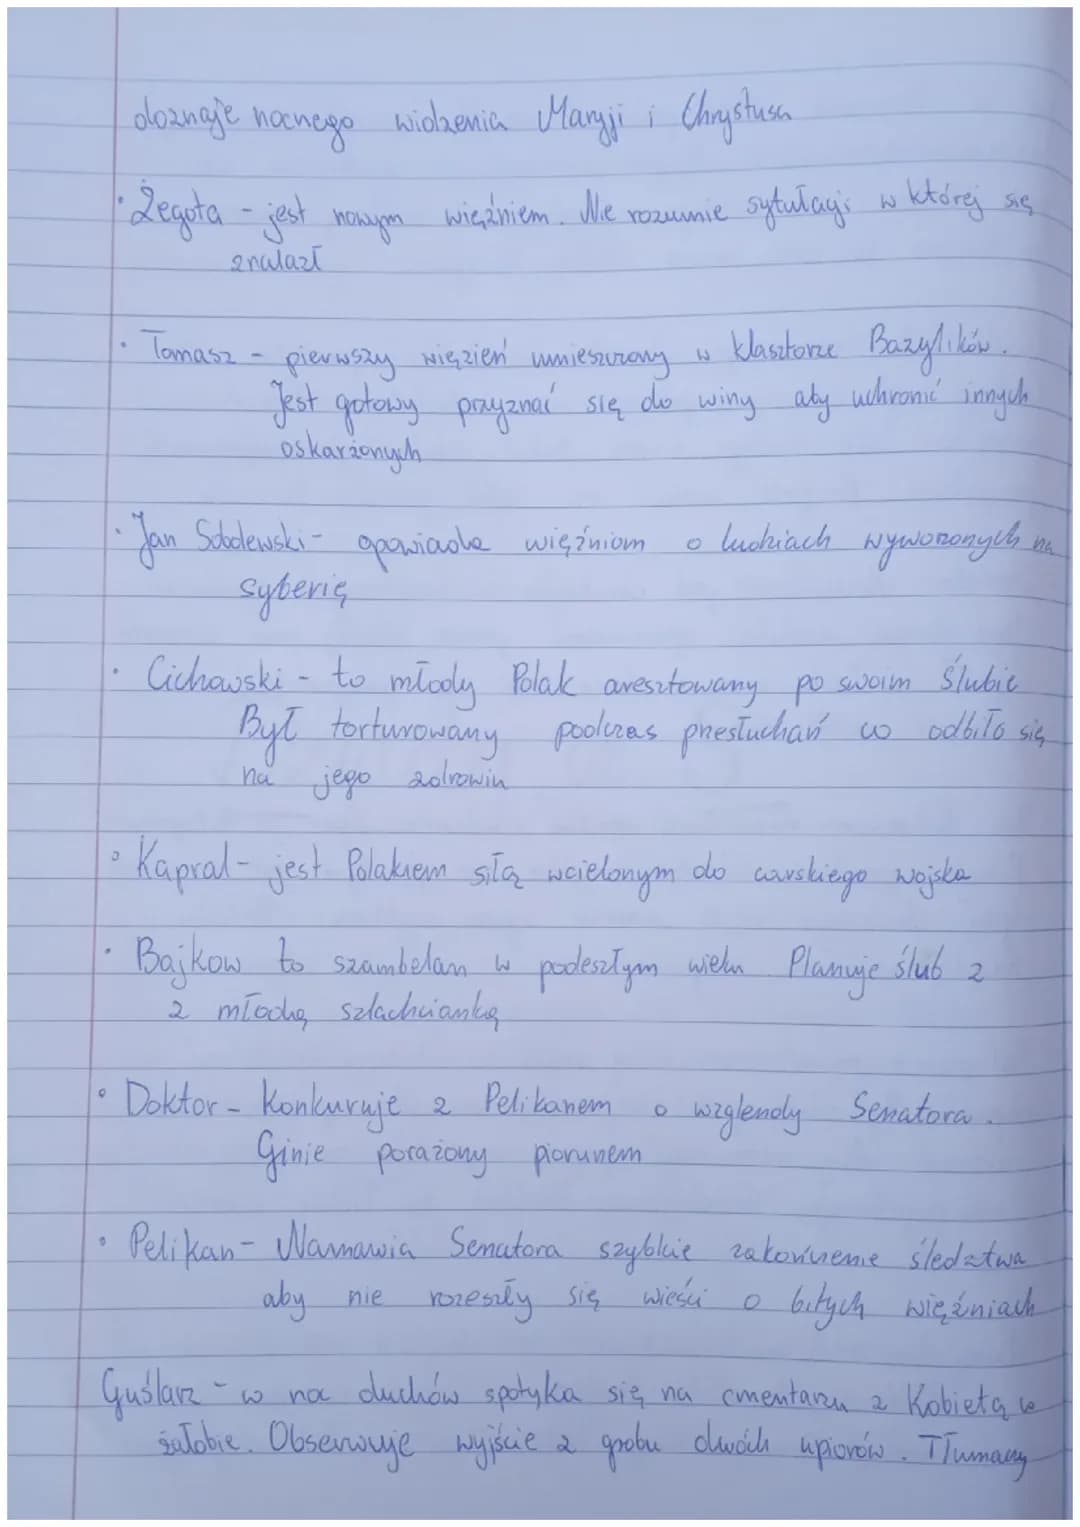 doznaje nocnego widzenia Maryji i Chrystusa
• Żegota - jest nowym więźniem. Nie rozumie sytułacji w której się
znalazł
• Tomasz - pierwszy więzień umieszczony w klasztorze Bazylików.
Jest gotowy przyznać się do winy aby uchronić innych
oskarżonych
• Jan Sobolewski - opowiada więźniom o ludziach wywożonych na
syberię
• Cichowski - to młody Polak aresztowany po swoim ślubie
Był torturowany podczas przesłuchań co odbiło się
na jego zdrowiu
• Kapral - jest Polakiem siłą wcielonym do carskiego wojska
• Bajkow to szambelan w podeszłym wieku Planuje ślub z
z młodą szlachcianką
• Doktor - Konkuruje z Pelikanem o względy Senatora.
Ginie porażony piorunem
• Pelikan - Namawia Senatora szybkie zakończenie śledztwa
aby nie rozeszły się wieści o bitych więźniach
Guślarz - w noc duchów spotyka się na cmentarzu z Kobietą w
żałobie. Obserwuje wyjście z grobu dwóch upiorów. Tłumaczy